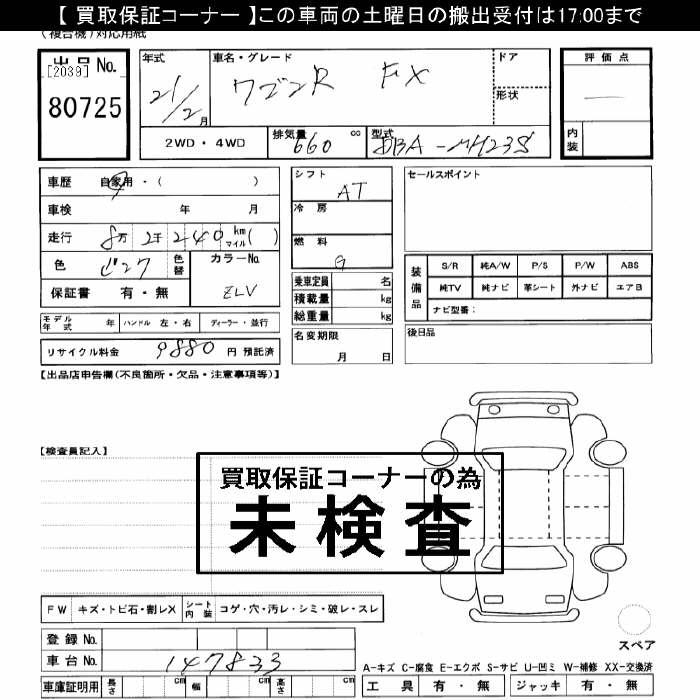 【 買取保証コーナー 】この車両の土曜日の搬出受付は17:00まで
(複合機)対応用紙
出品 No. [2039] 80725
年式 21/2月
車名・グレード ワゴンR FX
ドア
形状
評価点 —
内装
2WD・4WD
排気量 660 cc
型式 DBA-MH23S
車歴 自家用・( )
車検 年 月
走行 8万 2千 240 km マイル ( )
色 ピンク 色替
カラーNo. ZLV
保証書 有・無
モデル年式 年 ハンドル 左・右 ディーラー・並行
リサイクル料金 9880 円 預託済
シフト AT
冷房
燃料 G
乗車定員 名
積載量 kg
総重量 kg
名変期限 月 日
セールスポイント
装備品 S/R 純A/W P/S P/W ABS
純TV 純ナビ 革シート 外ナビ エアB
ナビ型番:
後日品
【出品店申告欄(不良箇所・欠品・注意事項等)】
【検査員記入】
買取保証コーナーの為
未検査
FW キズ・トビ石・割レX シート内装 コゲ・穴・汚レ・シミ・破レ・スレ
登録 No.
車台 No. 147833
車庫証明用 長さ cm 幅 cm 高さ cm
スペア
A-キズ C-腐食 E-エクボ S-サビ U-凹ミ W-補修 XX-交換済
工具 有・無 ジャッキ 有・無